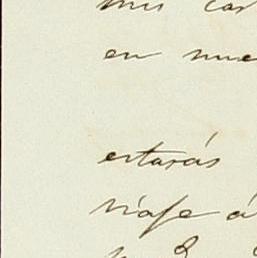 mis car
en nue
estarás
viaje á